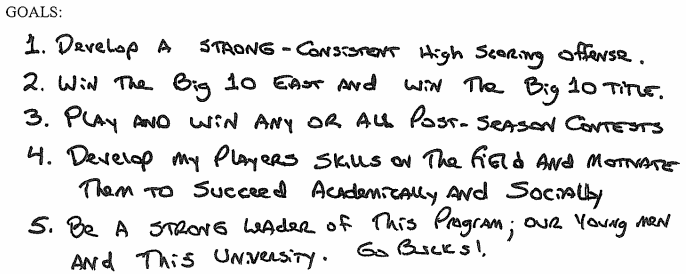 GOALS:
1. Develop A STRONG - CONSISTENT High Scoring offense.
2. WiN The Big 10 EAST AND WIN The Big 10 TITLE.
3. PLAY AND WIN ANY OR ALL POST-SEASON CONTESTS
4. Develop My Players Skills on The field AND MOTIVATE
Them TO Succeed Academically AND Socially
5. Be A STRONG LEADER of This Program; OUR YOUNG MEN
AND This UNIVERSITY. Go Bucks!